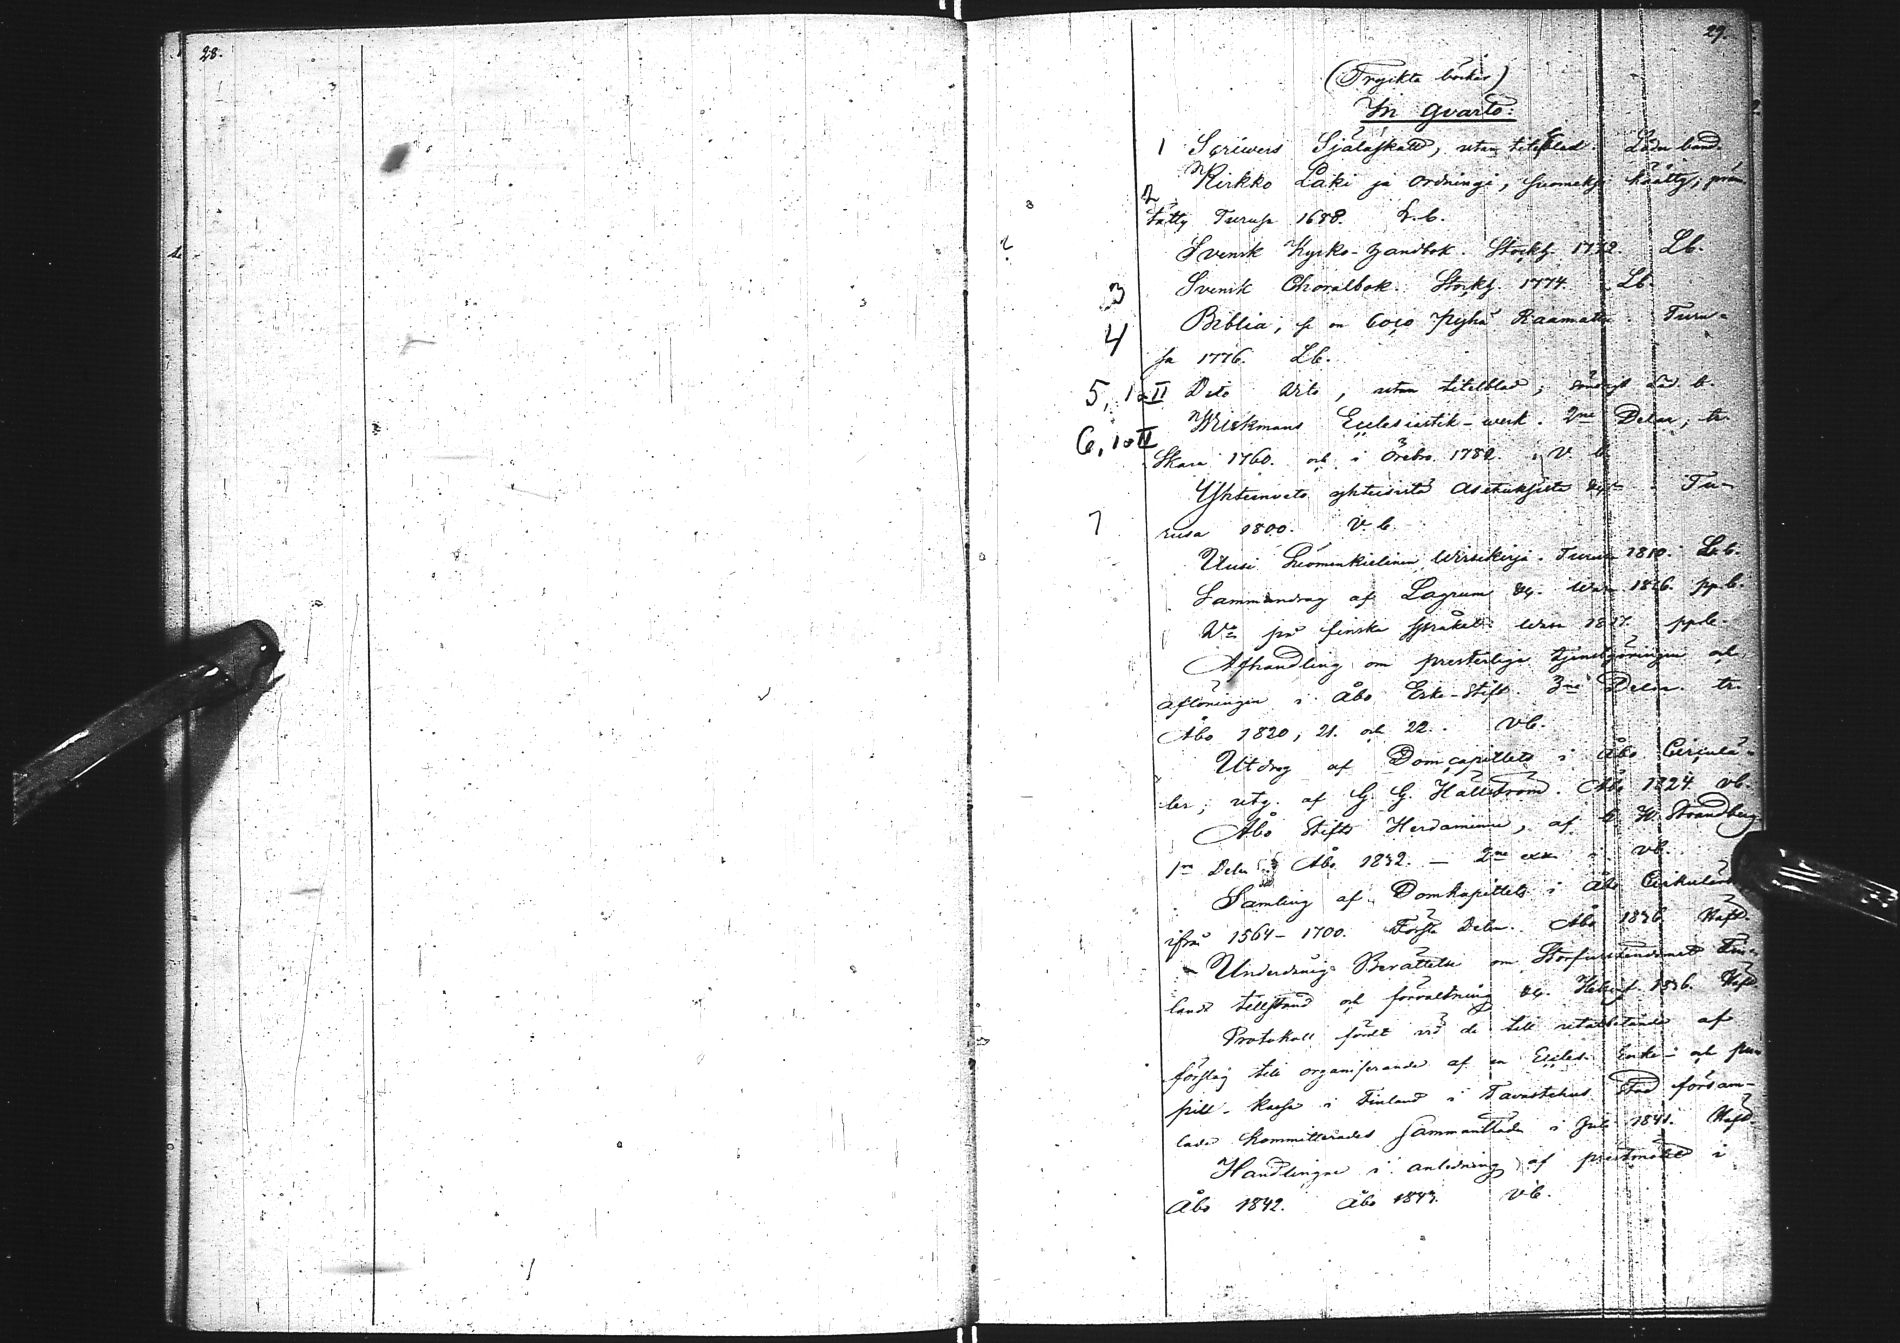 28.
29.
(Tryckta böcker)
In qvarto:
1 Scrivers Själaskatt, utan titelblad. Läder band
2 Kirkko Laki ja Ordningi, suomeksi käätty, prän-
tätty Turusa 1688. L.b.
Svensk Kyrko-Handbok. Stockh. 1772. Lb.
3 Svensk Choralbok. Stockh. 1774. Lb.
4 Biblia, se on Coco Pyhä Raamattu. Turu-
sa 1776. Lb.
5, I o II Dito dito, utan titelblad, Läd. b.
6, I o II Wilskmans Ecclesiastik-werk. 2ne Delar, tr.
Skara 1760. och i Örebro 1782. i V. b.
7 Yhteenveto yhteisistä Asetuksista &c. Tu-
rusa 1800. V. b.
Uusi Suomenkielinen Wirsikirja. Turusa 1810. Lb.
Sammandrag af Lagrum &c. Wasa 1826. pp.b.
Do på finska språket. Wasa 1827. ppb.
Afhandling om presterliga tjenstgöringen och
aflöningen i Åbo Erke-Stift. 3ne Delar. tr.
Åbo 1820, 21. och 22. Vb.
Utdrag af Domcapitlets i Åbo Circulä-
rer, utg. af G. G. Hällström. Åbo 1824 vb.
Åbo Stifts Herdaminne, af C. H. Strandberg
1ra Delen Åbo 1832. — 2ne exx. i vb.
Samling af Domkapitlets i Åbo Cirkulärer
ifrån 1564–1700. Första Delen. Åbo 1836. Häft.
Underdånig Berättelse om Storfurstendömet Fin-
lands tillstånd och förvaltning &c. Helsingf. 1836. Häft
Protokoll fördt vid de till utarbetande af
förslag till organiserande af en Eccles. Enke- och pu-
pill-kassa i Finland i Tavastehus Stad försam-
lade Kommitterades sammanträde i Juli 1841. Häft.
Handlingar i anledning af prestmötet i
Åbo 1842. Åbo 1843. vb.